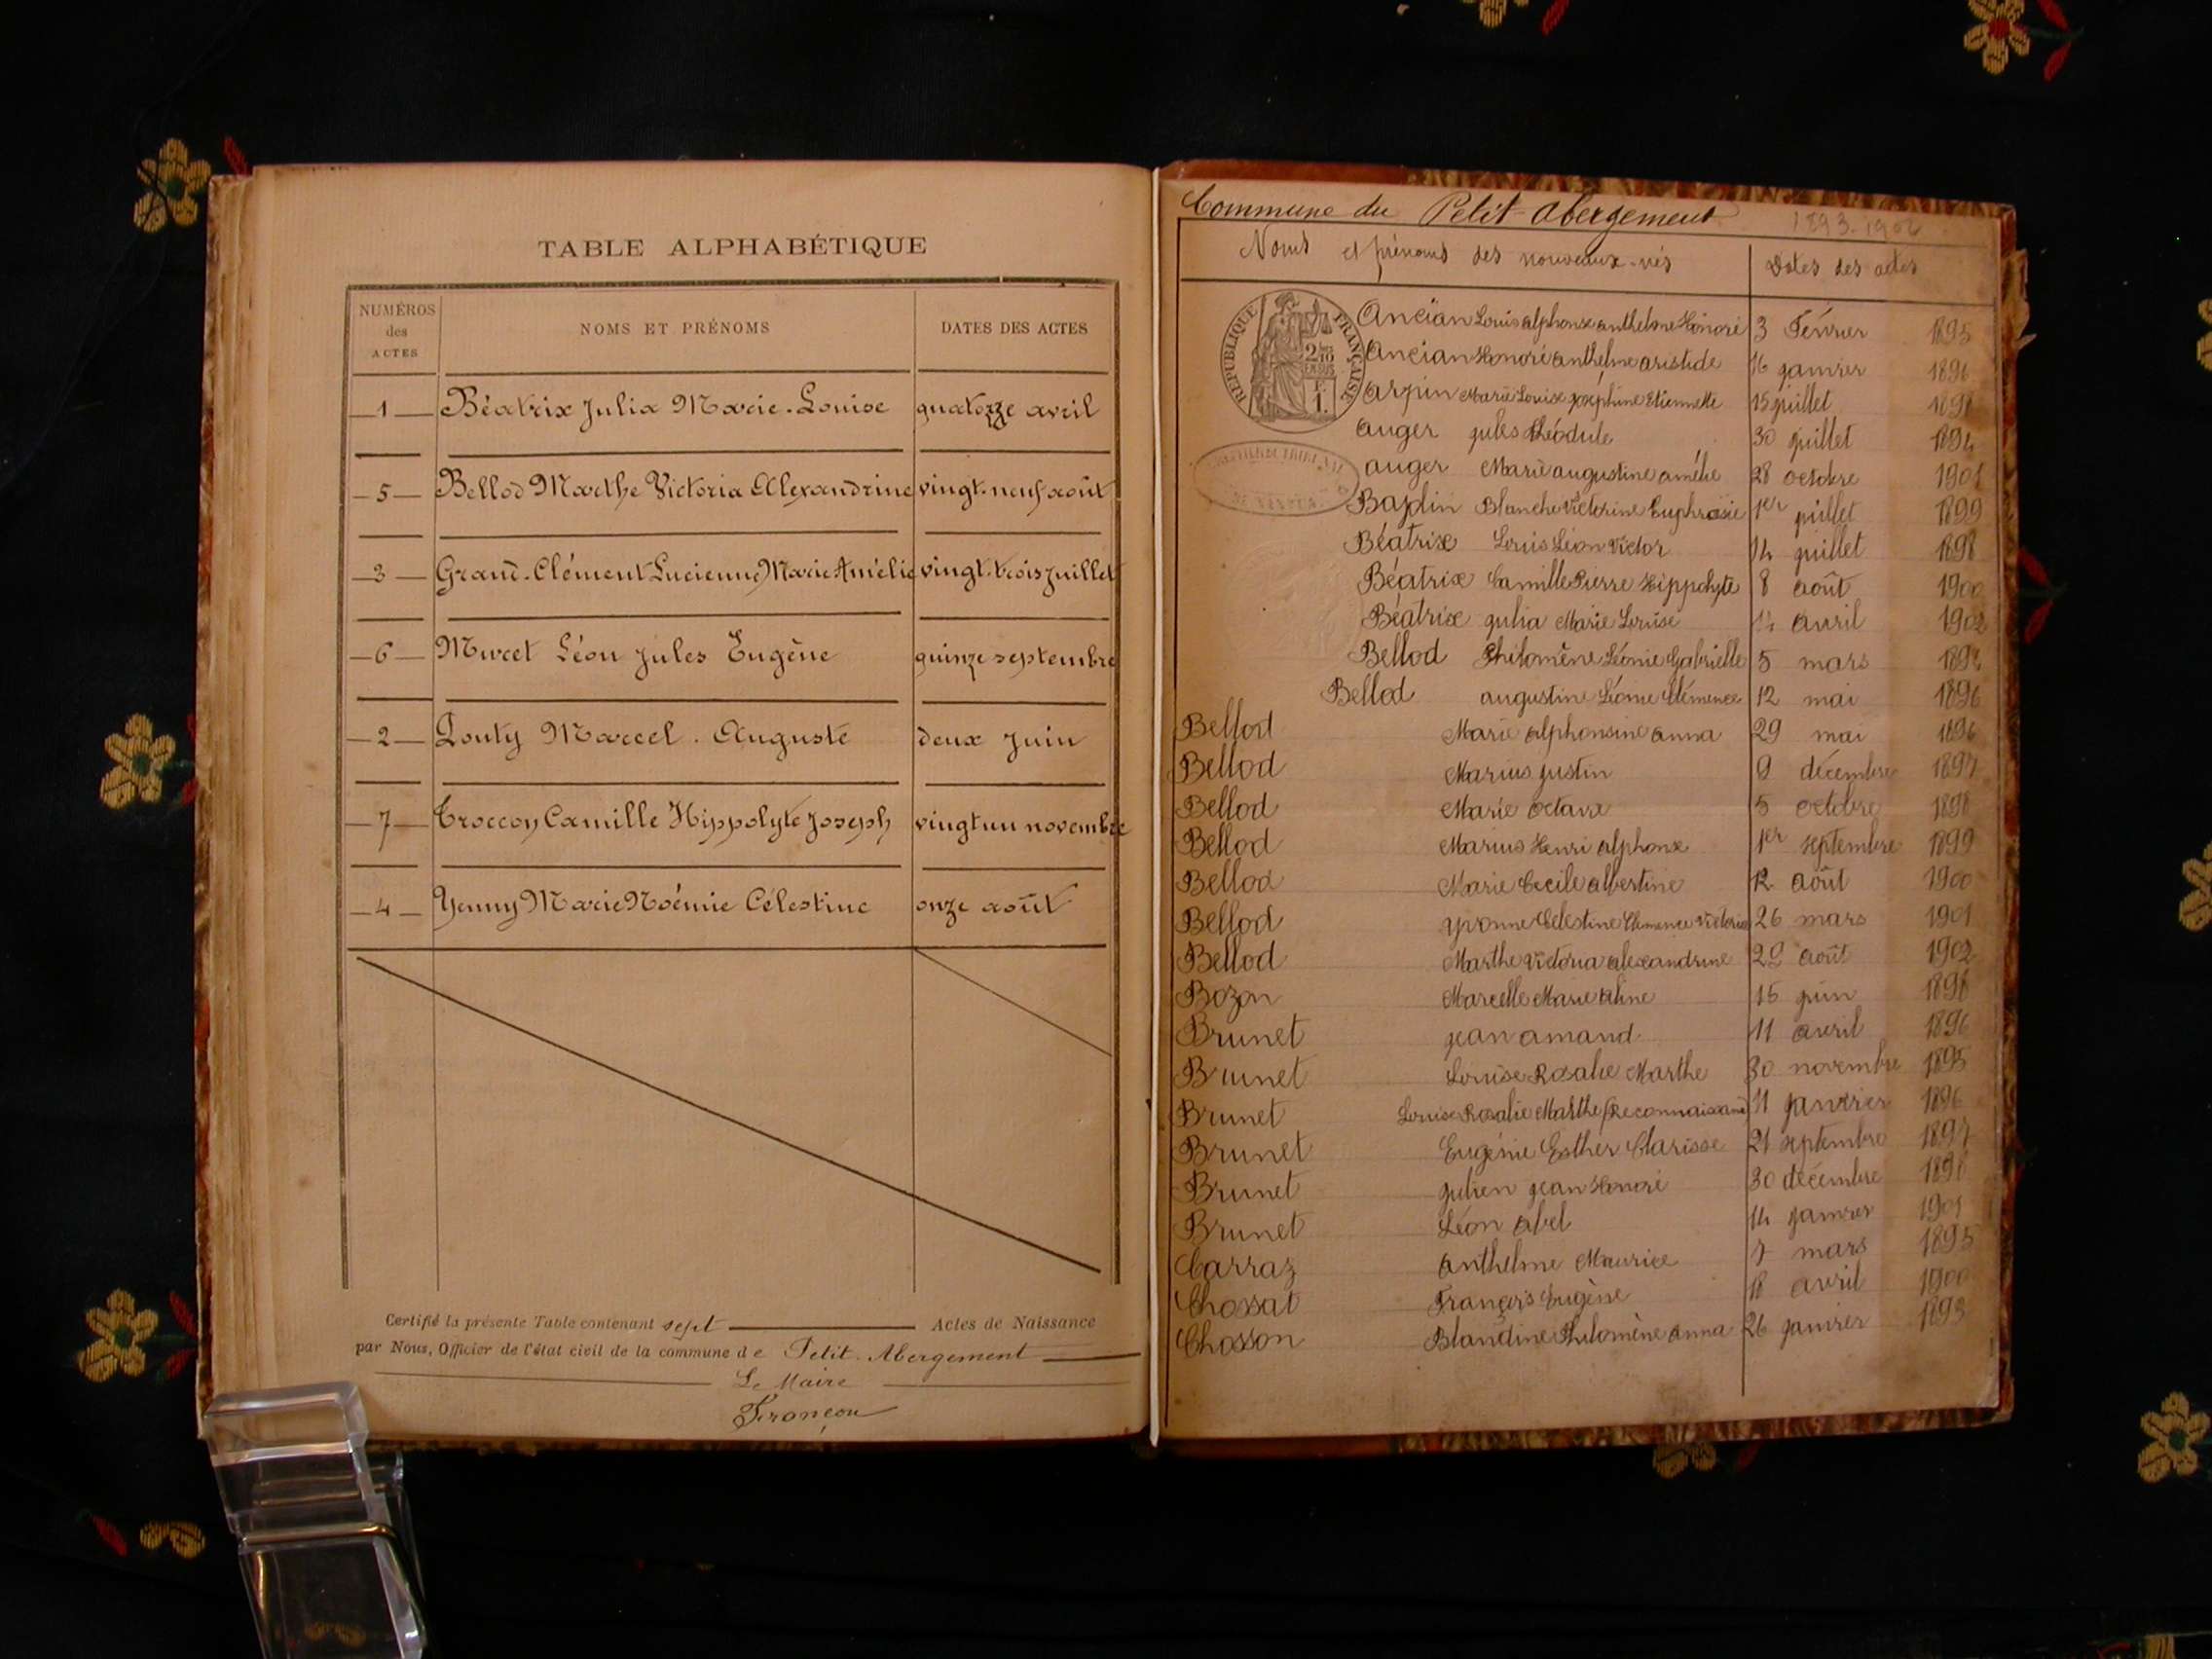 TABLE ALPHABÉTIQUE
NUMÉROS des ACTES NOMS ET PRÉNOMS DATES DES ACTES
1 Béatrix Julia Marie-Louise quatorze avril
5 Bellod Marthe Victoria Alexandrine vingt-neuf août
3 Grand-Clément Lucienne Marie Amélie vingt-trois Juillet
6 Léon Jules Eugène quinze septembre
2 Marcel Auguste deux Juin
7 Troccon Camille Hippolyte Joseph vingt un novembre
4 Yenny Marie Noémie Célestine onze août
Certifié la présente Table contenant sept Actes de Naissance
par Nous, Officier de l'état civil de la commune de Petit-Abergement
Le Maire
Commune du Petit-Abergement 1893-1902
Noms et prénoms des nouveaux-nés Dates des actes
RÉPUBLIQUE FRANÇAISE
Ancian Louis alphonse anthelme Honoré 3 Février 1895
Ancian Honoré anthelme aristide 16 janvier 1896
Arpin Marie Louise joséphine Etiennette 15 juillet 1898
auger jules Théodule 30 juillet 1894
auger Marie augustine amélie 28 octobre 1901
Blanche Victorine Euphrasie 1er juillet 1899
Béatrix Louis Léon Victor 14 juillet 1898
Béatrix Camille Pierre Hippolyte 8 août 1900
Béatrix julia Marie Louise 14 avril 1902
Bellod Philomène Léonie Gabrielle 5 mars
Bellod augustine Léonie Clémence 12 mai 1896
Bellod Marie alphonsine anna 29 mai 1896
Bellod Marius justin 9 décembre 1897
Bellod Marie octave 5 octobre 1898
Bellod Marius Henri alphonse 1er septembre 1899
Bellod Marie Cecile albertine 12 août 1900
Bellod yvonne Célestine Clemence Victoria 26 mars 1901
Bellod Marthe Victoria alexandrine 29 août 1902
Bozon Marcelle Marie aline 15 juin
Brunet jean amand 11 avril
Brunet Louise Rosalie Marthe 30 novembre 1895
Brunet Louise Rosalie Marthe (Reconnaissance) 11 janvier 1896
Brunet Eugénie Esther Clarisse 21 septembre 1897
Brunet julien jean Honoré 30 décembre
Brunet Léon abel 14 janvier 1901
Carraz anthelme Maurice 7 mars 1895
Chossat François Eugène 18 avril 1900
Chosson Blandine Philomène anna 26 janvier 1893